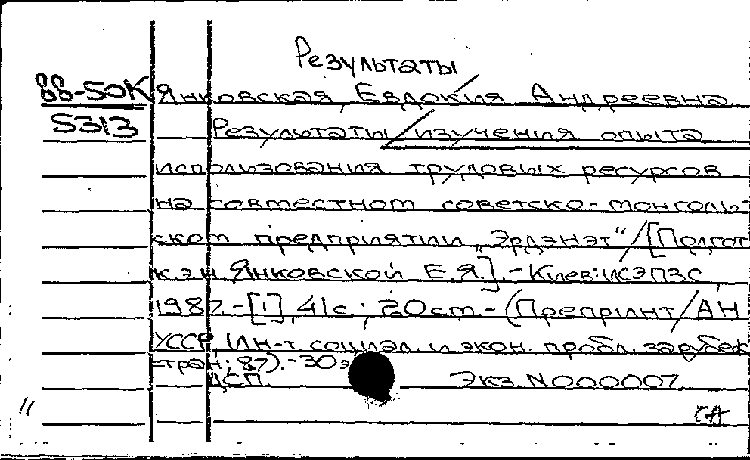 Результаты
88-50К Янковская, Евдокия Андреевна
5313 Результаты изучения опыта
использования трудовых ресурсов
на совместном советско-монголь-
ском предприятии „Эрдэнэт“/[Подгот.
к.э.н. Янковской Е.Я.] - Киев: ИСЭПЗС,
1987. - [1], 41с.; 20см - (Препринт/АН
УССР, Ин-т социал. и экон. пробл. зарубеж.
стран; 87). - 30э
ДСП. Экз. N000007